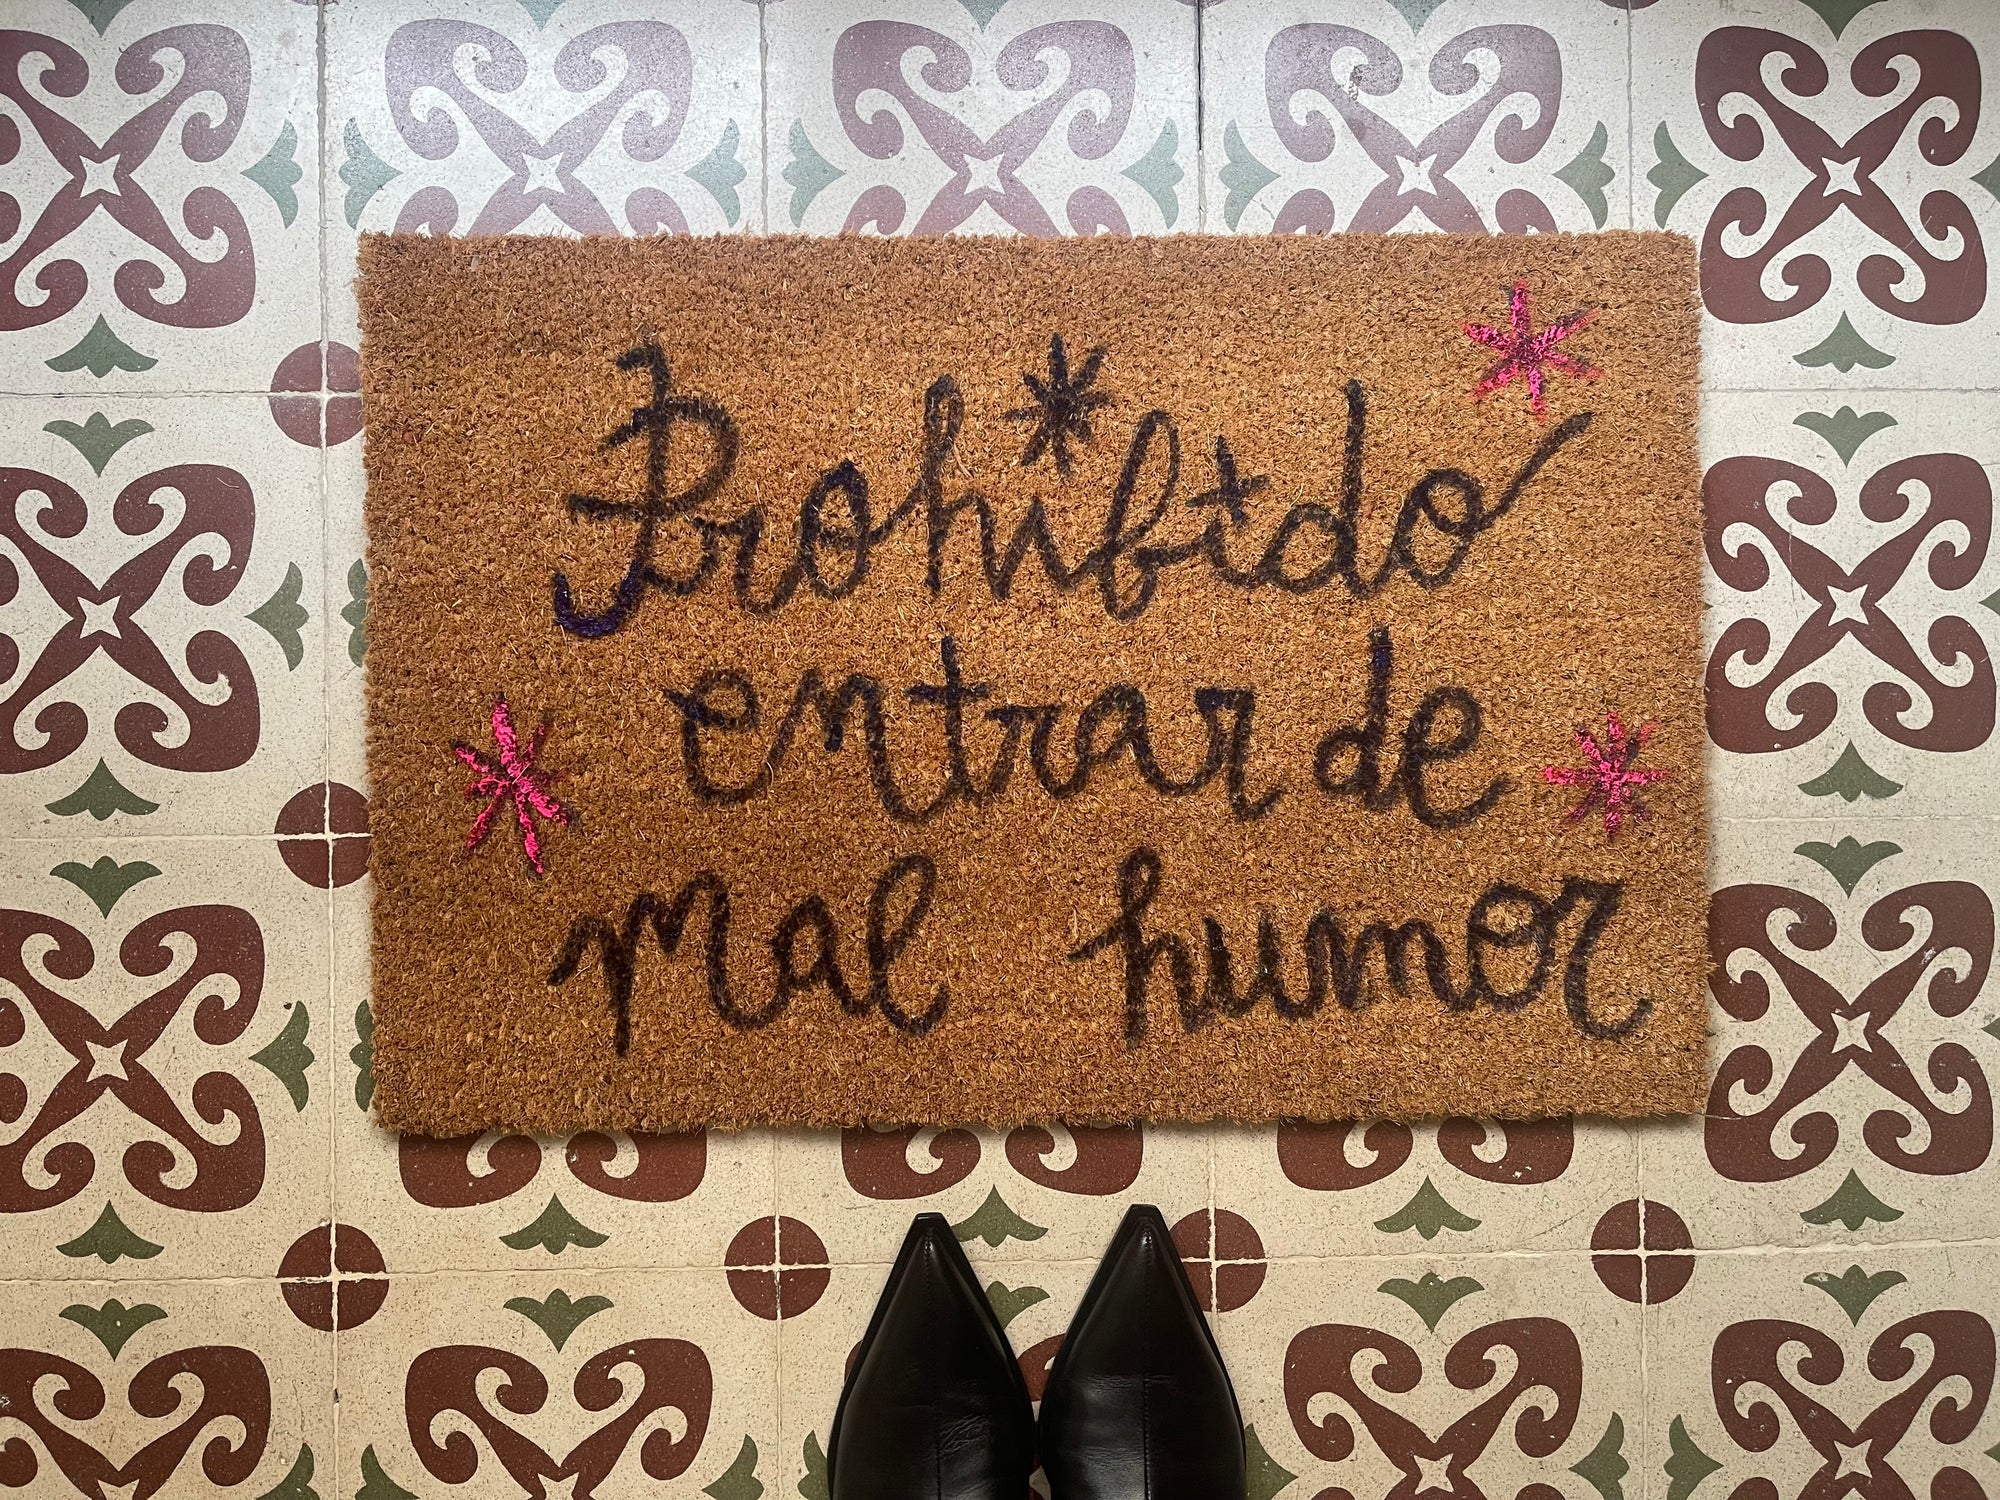 Prohibido
entrar de
mal humor